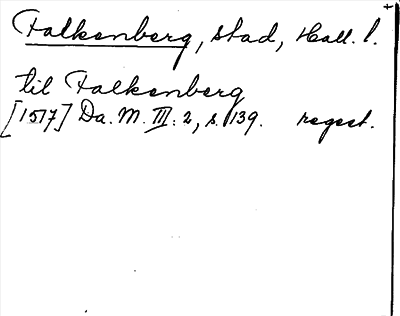 Falkenberg, stad, Hall. l.
til Falkenberg
[1517] Da. M. III: 2, s. 139. regest.